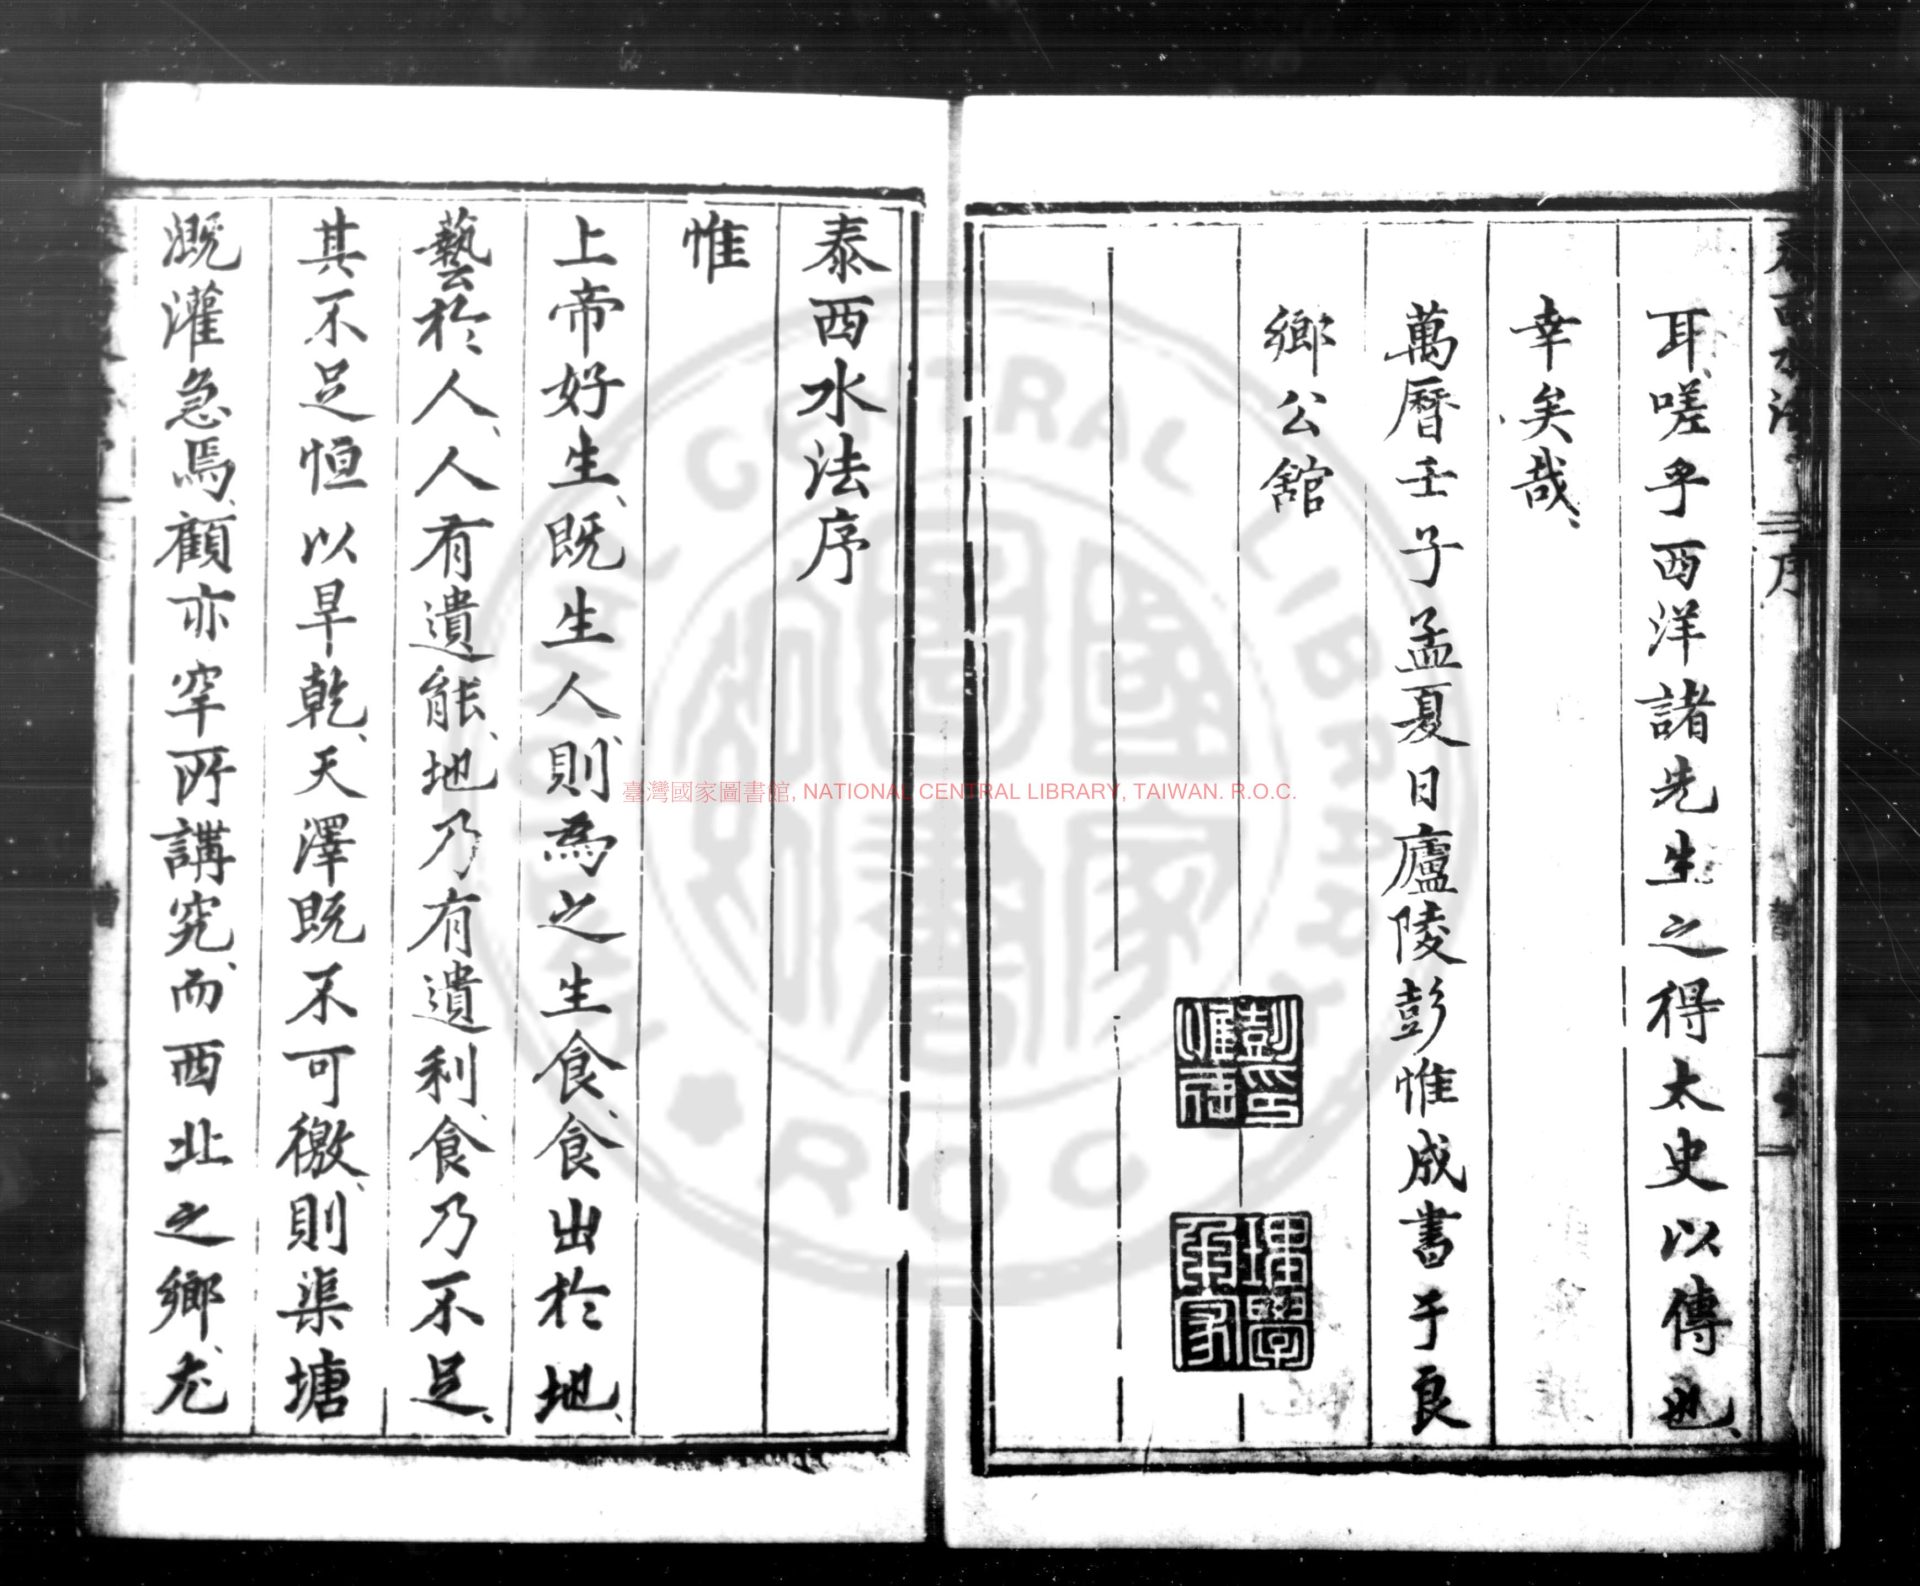 耳嗟乎西洋諸先生之得太史以傳也
幸矣哉
萬曆壬子孟夏日廬陵彭惟成書于良
鄉公舘
彭印惟成
理學
家
泰西水法序
惟
上帝好生既生人則為之生食食出於地
藝於人人有遺能地乃有遺利食乃不足
其不足恒以旱乾天澤既不可徼則渠塘
溉灌急焉顧亦罕所講究而西北之鄉尤
臺灣國家圖書館, NATIONAL CENTRAL LIBRARY, TAIWAN. R.O.C.
NATIONAL CENTRAL LIBRARY
ROC
國家圖書館